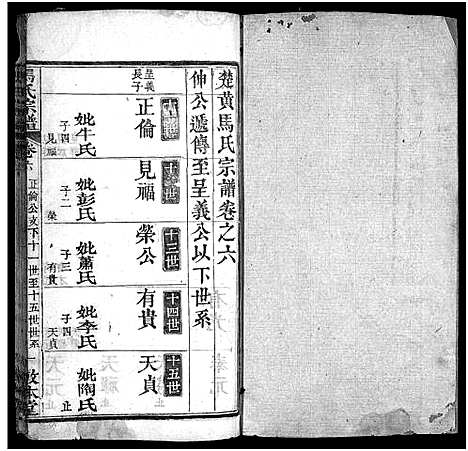 楚黃馬氏宗譜卷之六
伸公遞傳至呈義公以下世系
十一世
呈義長子
正倫
妣牛氏
子四
見福
十二世
見福
妣彭氏
子二
榮
十三世
榮公
妣蕭氏
子三
有貴
十四世
有貴
妣李氏
子四
天貞
十五世
天貞
妣陶氏
止
馬氏宗譜
卷六
正倫公支下十一世至十五世世系
一
敦本堂